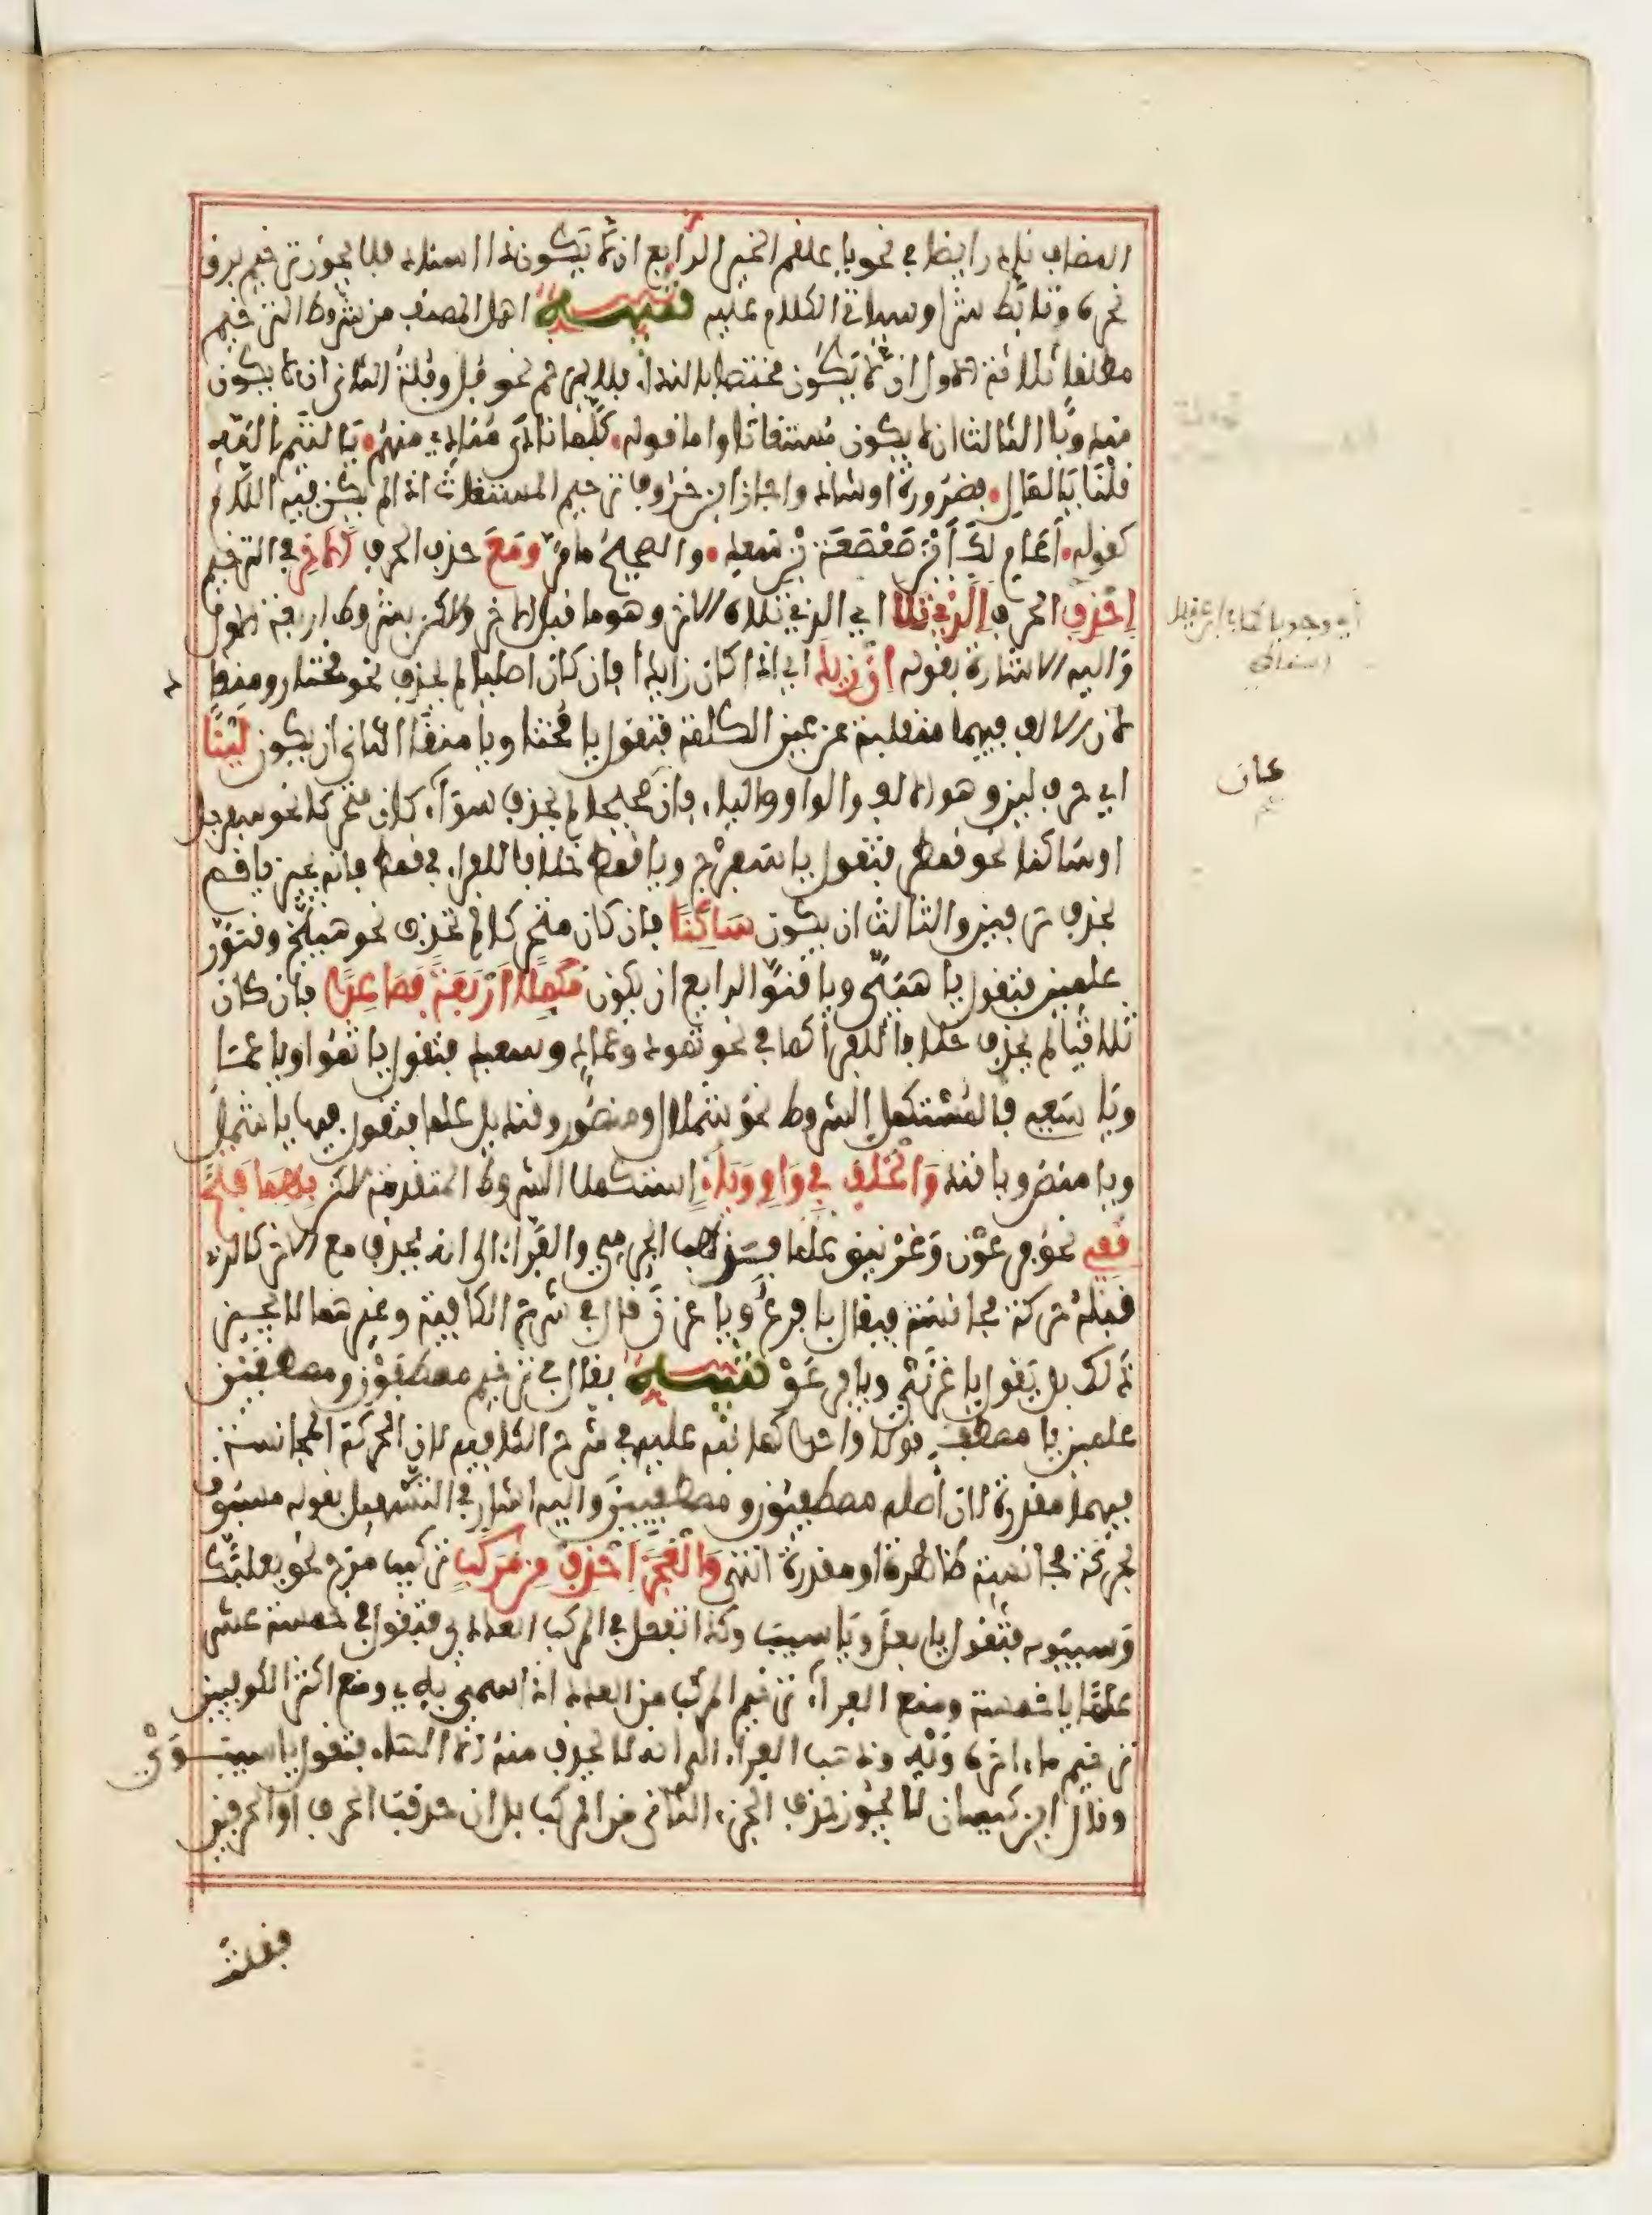 المضاف نادر ايضا في نحو يا علقم الخير الرابع ان لا يكون ذا اسناد فلا يجوز ترخيم برق
نحره وتابط شرا وسياتي الكلام عليه تنبيه اهمل المصنف من شروط الترخيم
مطلقا ثلاثة الاول ان لا يكون مختصا بالنداء فلا يرخم نحو فل وفلة الثاني ان لا يكون
مندوبا الثالث ان لا يكون مستغاثا واما قوله كلما نادى مناد منهم يا لتيم الله
قلنا يا لمال فضرورة او شاذ واجاز ابن خروف ترخيم المستغاث اذا لم يكن فيه اللام
كقوله اعام لك ابن صعصعة بن سعد والصحيح ما مر ومع حذف الحرف الاخر في الترخيم
احذف الحرف الذي تلا اي الذي تلاه الاخر وهو ما قبل الاخر ولكن بشروط اربعة الاول
واليه الاشارة بقوله ان زيد اي اذا كان زايدا فان كان اصليا لم يحذف نحو مختار ومنقاد
لان الالف فيهما منقلبة عن عين الكلمة فتقول يا مختا ويا منقا الثاني ان يكون لينا
اي حرف لين وهو الالف والواو والياء فان صحيحا لم يحذف سواء كان متحركا نحو سفرجل
او ساكنا نحو قمطر فتقول يا سفرج ويا قمط خلافا للفراء في قمطر فانه يجيز يا قم
بحذف حرفين والثالث ان يكون ساكنا فان كان متحركا لم يحذف نحو هبيخ وقنور
علمين فتقول يا هبي ويا قنو الرابع ان يكون مكملا اربعة فصاعدا فان كان
ثلاثيا لم يحذف خلافا للفراء كما في نحو ثمود وعماد وسعيد فتقول يا ثمو او يا عما
ويا سعي فالمستكمل الشروط نحو شملال ومنصور وقنديل علما فتقول فيها يا شمل
ويا منص ويا قند والخلف في واو وياء استكملا الشروط المتقدمة لكن بهما فتح
قفي نحو فرعون وغرنيق علما فمذهب الجرمي والفراء الى انه يحذف مع الاخر كالذي
قبله حركة مجانسة فيقال يا فرع ويا غرن قال في شرح الكافية وغيرهما لا يجيز
ذلك بل يقول يا غرني ويا فرعو تنبيه يقال في ترخيم مصطفون ومصطفين
علمين يا مصطف قولا واحدا كما نبه عليه في شرح الكافيه لان الحركة المجانسة
فيهما مقدرة لان اصله مصطفيون ومصطفيين واليه اشار في التسهيل بقوله مسبوق
بحركة مجانسة ظاهرة او مقدرة انتهى والعجز احذف من مركب تركيب مزج نحو بعلبك
وسيبويه فتقول يا بعل ويا سيب وكذا تفعل في المركب العددي فتقول في خمسة عشر
علما يا خمسة ومنع الفراء ترخيم المركب من العدد اذا سمي به ومنع اكثر الكوفيين
ترخيم ما اخره ويه وذهب الفراء الى انه لا يحذف منه الا الهاء فتقول يا سيبوي
وقال ابن كيسان لا يجوز حذف الجزء الثاني من المركب بل ان حذفت الحرف او الحرفين
فقلت